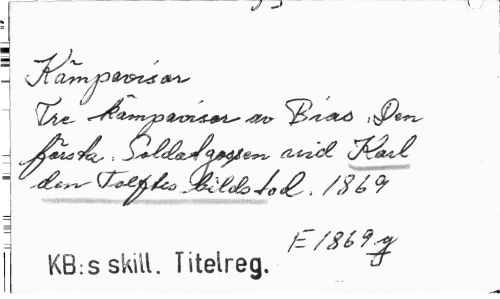 Kämpavisor
Tre kämpavisor av Bias. Den
första. Soldatgossen vid Karl
den Tolftes bildstod. 1869
E 1869 g
KB:s skill. Titelreg.